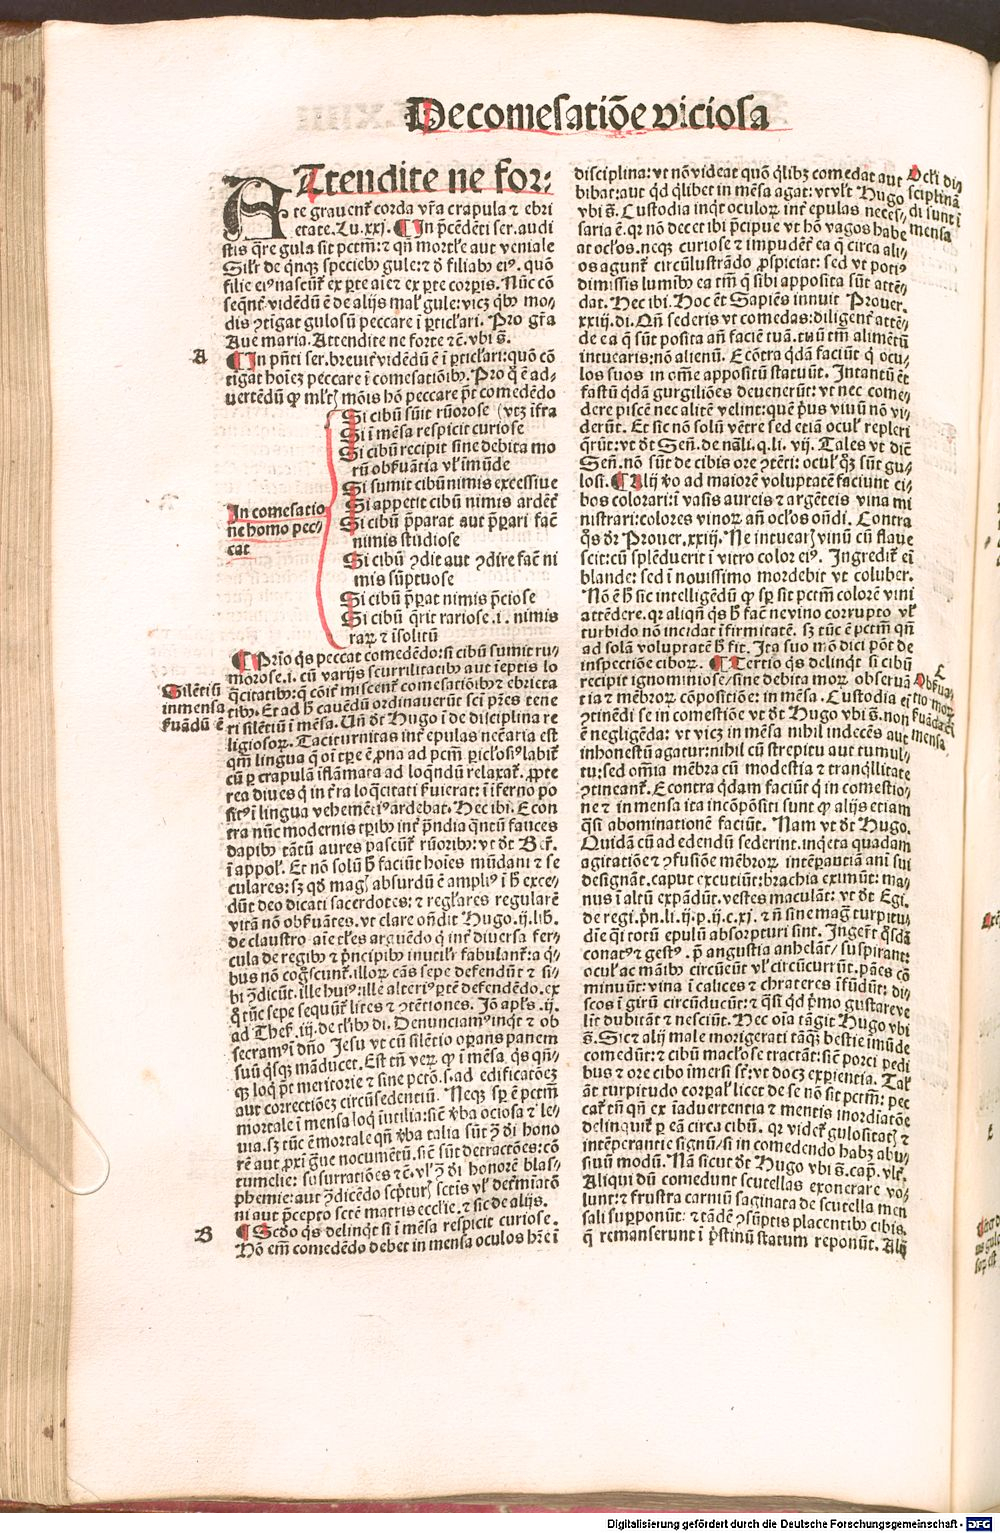 De comesatiōe viciosa
ATtendite ne for:
te grauent̃ corda vr̃a crapula ⁊ ebri
etate. Lu. xxj. ¶ In p̄cedēti ser. audi
stis q̄re gula sit pctm̄: ⁊ qn̄ mortl'e aut veniale
Sil'r de q̄nqꝫ specieb9 gule: ⁊ d̄ filiab9 ei9. quō
filie ei9 nascunt̃ ex ꝑte aīe ⁊ ex ꝑte corpis. Nūc cō
seq̄nt̃ vidēdū ē de alijs mal' gule: vicꝫ qb9 mo-
dis ꝯtīgat gulosū peccare ī ꝑticl'ari. Pro gr̄a
Aue maria. Attendite ne forte ⁊c̄. vbi s̄.
A
¶ In pn̄ti ser. breuit̃ vidēdū ē ī ꝑticl'ari: quō cō
tigat hoīeꝫ peccare ī comesatiōib9. Pro q̄ ē ad-
uertēdū qꝫ ml't' mōis hō peccare pt̄ comedēdo
In comesatio
ne homo pec-
cat
Si cibū sūit rūorose (vtꝫ īfra
Si ī mēsa respicit curiose
Si cibū recipit sine debita mo
rū obẜuātia vl' īmūde
Si sumit cibū nimis excessiue
Si appetit cibū nimis ardēt̃
Si cibū p̄parat aut p̄pari fac̄
nimis studiose
Si cibū ꝯdit aut ꝯdire fac̄ ni
mis sūptuose
Si cibū p̄pat nimis p̄ciose
Si cibū q̄rit rariose .i. nimis
raꝝ ⁊ īsolitū
¶ Prīo q̄s peccat comedēdo: si cibū sumit ru-
morose .i. cū varijs scurrilitatib9 aut īeptis lo
q̄citatib9: q̄ cōit̃ miscent̃ comesatiōib9 ⁊ ebrieta
tib9. Et ad h̄ cauēdū ordinauerūt sc̄i pr̄es tene
ri silētiū ī mēsa. Un̄ dt̄ Hugo ī de disciplina re
ligiosoꝝ. Taciturnitas int̃ epulas necc̄aria est
Silētiū
in mensa
ẜuādū ē
qm̄ lingua q̄ oī tpe ē ꝓna ad pcm̄ ꝑicl'osi9 labit̃
cū ꝑ crapulā īflāmata ad loq̄ndū relaxat̃. Propte
rea diues q̄ in t̃ra loq̄citati ẜuierat: ī īferno po
sit9 ī lingua vehemēti9 ardebat. Hec ibi. Econ
tra nūc modernis tꝑib9 int̃ prādia q̄ntū fauces
dapib9 tātū aures pascunt̃ rūorib9: vt dt̄ Ber̄.
ī appol'. Et nō solū h̄ faciūt hoīes mūdani ⁊ se
culares: sꝫ qd̄ mag' absurdū ē ampli9 ī h̄ exce-
dūt deo dicati sacerdotes: ⁊ regl'ares regularē
vitā nō obẜuātes. vt clare on̄dit Hugo .ij. lib̄.
de claustro aīe tl'es arguēdo q̄ int̃ diuersa fer-
cula de regib9 ⁊ p̄ncipib9 inutil'r fabulant̃: a q̄-
bus nō cogn̄scunt̃. illoꝝ cās sepe defendūt ⁊ si-
bi ꝯdicūt. ille hui9: ille alteri9 ptē defendēdo. ex
q̄ tūc sepe sequūt̃ lites ⁊ ꝯtētiones. Jō apl's .ij.
ad Thes̄. iij. de tl'ib9 di. Denunciam9 inq̄t ⁊ ob
secram9 ī dn̄o Jesu vt cū silētio oꝑans panem
suū q̄sqꝫ māducet. Est tn̄ veꝝ qꝫ ī mēsa q̄s qn̄-
qꝫ loq̄ pt̄ meritorie ⁊ sine petō. s. ad edificatōeꝫ
aut correctiōeꝫ circūsedentiū. Neqꝫ sꝑ ē pctm̄
mortale ī mensa loq̄ īutilia: sic̄ v̄ba ociosa ⁊ le-
uia. sꝫ tūc ē mortale qn̄ v̄ba talia sūt ꝯ̄ di hono
rē aut ꝓxi gͣue nocumētū. sic̄ sūt detractōes: cō
tumelie: susurratiōes ⁊c̄. vl' ꝯ̄ di honorē blas-
phemie: aut ꝯdicēdo sc̄pture sct̄is vl' determīatō
ni aut p̄cepto sctē matris eccl'ie. ⁊ sic de alijs.
B
¶ Scd̄o q̄s delinq̄t si ī mēsa respicit curiose.
Hō em̄ comedēdo debet in mensa oculos hr̄e ī
disciplina: vt nō videat quō q̄libꝫ comedat aut
bibat: aut qd̄ q̄libet in mēsa agat: vt vl't Hugo
vbi s̄. Custodia inq̄t oculoꝝ int̃ epulas neces-
saria ē. qꝛ nō decet ibi p̄cipue vt hō vagos habe
Ocl'i di
sciplinā
di sunt ī
mensa
at ocl'os. neqꝫ curiose ⁊ impudēt̃ ea q̄ circa ali-
os agunt̃ circūlustrādo ꝓspiciat: sed vt poti9
dimissis lumib9 ea tm̄ q̄ sibi apposita sūt attē-
dat. Hec ibi. Hoc ēt Sapiēs innuit Prouer.
xxiij. di. Qn̄ sederis vt comedas: diligent̃ attē-
de ea q̄ sūt posita an̄ faciē tuā. tuū tm̄ alimētū
intuearis: nō alienū. Ecōtra q̄dā faciūt q̄ ocu-
los suos in om̄e appositū statuūt. Intantū ēt
fastū q̄dā gurgiliōes deuenerūt: vt nec come-
dere piscē nec alitē velint: quē prius viuū nō vi-
derūt. Et sic nō solū vētre sed etiā ocul' repleri
q̄rūt: vt dt̄ Sen̄. de nāli. q. li. vij. Tales vt dic̄
Sen̄. nō sūt de cibis ore ꝯtēti: ocul' q̄ꝫ sūt gu-
losi. ¶ Alij v̄o ad maiorē voluptatē faciunt ci-
bos colorari: ī vasis aureis ⁊ argēteis vina mi
nistrari: colores vinoꝝ an̄ ocl'os on̄di. Contra
q̄s dt̄ Prouer. xxiij. Ne intuear' vinū cū flaue
scit: cū splēduerit ī vitro color ei9. Ingredit̃ eī
blande: sed ī nouissimo mordebit vt coluber.
Nō ē h̄ sic intelligēdū qꝫ sꝑ sit pctm̄ colorē vini
attēdere. qꝛ aliqn̄ q̄s h̄ fac̄ ne vino corrupto vl'
turbido nō incidat īfirmitatē. sꝫ tūc ē pctm̄ qn̄
ad solā voluptatē h̄ fit. Ita suo mō dici pōt de
inspectiōe ciboꝝ. ¶ Tertio q̄s delinq̄t si cibū
recipit ignominiose/ sine debita moꝝ obserua
C
Obẜua-
tio moꝝ
ẜuāda ē ī
mensa
tia ⁊ mēbroꝝ cōpositiōe: in mēsa. Custodia eī
ꝯtinēdi se in comestiōe vt dt̄ Hugo vbi s̄. non
ē negligēda: vt vicꝫ in mēsa nihil indecēs aut
inhonestū agatur: nihil cū strepitu aut tumul-
tu: sed om̄ia mēbra cū modestia ⁊ tranq̄llitate
ꝯtineant̃. Econtra q̄dam faciūt q̄ in comestio-
ne ⁊ in mensa ita incōpōsiti sunt qꝫ alijs etiam
q̄si abominationē faciūt. Nam vt dt̄ Hugo.
Quidā cū ad edendū sederint. inq̄eta quadam
agitatiōe ⁊ ꝯfusiōe mēbroꝝ intēꝑantiā anī sui
designāt. caput excutiūt: brachia exerūt: ma-
nus ī altū expādūt. vestes maculāt: vt dt̄ Egi.
de regi. p̄n. li. ij. p. ij. c. xj. ⁊ n̄ sine mag̃ turpitu-
dīe q̄i totū epulū absorpturi sint. Ingerit̃ q̄sdā
conat9 ⁊ gest9. p̄ angustia anhelāt/ suspirant:
ocul' ac māib9 circūeūt vl' circūcurrūt. pāes cō
minuūt: vina ī calices ⁊ chrateres īfūdūt: di-
scos ī girū circūducūt: ⁊ q̄si qd̄ p̄mo gustare ve
līt dubitāt ⁊ nesciūt. Hec oīa tāgit Hugo vbi
s̄. Sic ⁊ alij male morigerati tāq̄ꝫ bestie īmūde
comedūt: ⁊ cibū macl'ose tractāt: sic̄ porci pedi
bus ⁊ ore cibo īmersi st̄: vt docꝫ exꝑientia. Tal'
āt turpitudo corꝑal' licet de se nō sit pctm̄: pec
cat̃ tn̄ qn̄ ex īaduertentia ⁊ mentis inordiatōe
delinquit̃ ꝑ eā circa cibū. qꝛ videt̃ gulositat' ⁊
intēperantie signū/ si in comedendo habꝫ abu-
siuū modū. Nā sicut dt̄ Hugo vbi s̄. cap̄. vlt̃.
Aliqui dū comedunt scutellas exonerare vo-
lunt: ⁊ frustra carniū saginata de scutella men
sali suꝑponūt: ⁊ tādē ꝯsūptis placentib9 cibis.
q̄ remanserunt ī p̄stinū statum reponūt. Alij
Digitalisierung gefördert durch die Deutsche Forschungsgemeinschaft - DFG